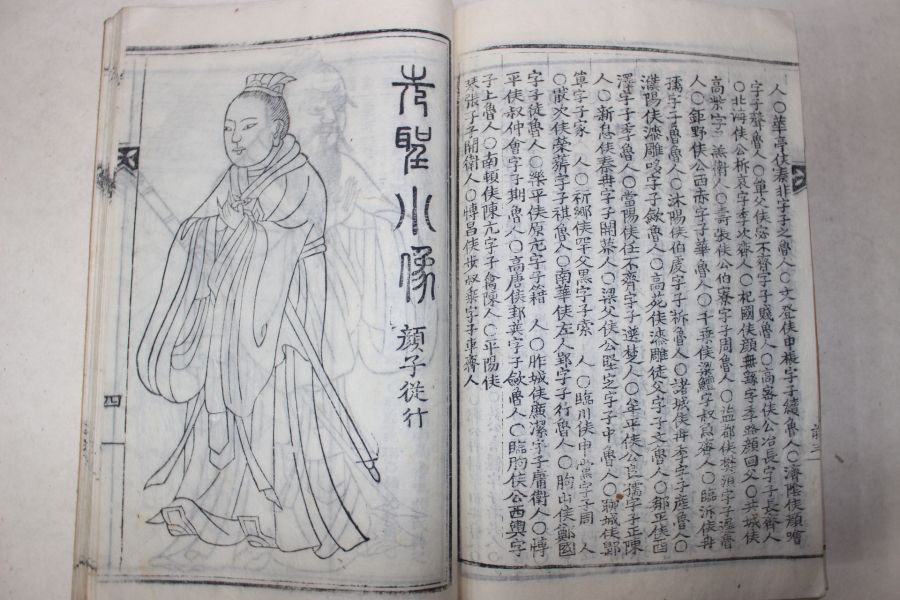 人○華亭侯秦非字子之魯人○文登侯申棖字子續魯人○濟陰侯顔噲
字子聲魯人○單父侯宓不齊字子賤魯人○高密侯公冶長字子長齊人
○北海侯公析哀字季次齊人○杞國侯顔無繇字季路顔回父○共城侯
高柴字子羔衛人○壽張侯公伯寮字子周魯人○益都侯樊須字子遲魯
人○鉅野侯公西赤字子華魯人○千乘侯梁鱣字叔魚齊人○臨沂侯冉
孺字子魯魯人○沐陽侯伯虔字子析魯人○諸城侯冉季字子產魯人○
濮陽侯漆雕哆字子歛魯人○高苑侯漆雕徒父字子文魯人○鄒平侯商
澤字子季魯人○當陽侯任不齊字子選楚人○牟平侯公良孺字子正陳
人○新息侯秦冉字子開蔡人○梁父侯公堅定字子中魯人○聊城侯鄡
單字子家 人○祈鄉侯罕父黑字子索 人○臨川侯申黨字子周 人
○猒次侯榮旂字子祺魯人○南華侯左人郢字子行魯人○朐山侯鄭國
字子徒魯人○樂平侯原亢字子籍 人○胙城侯廉潔字子庸衛人○博
平侯叔仲會字子期魯人○高唐侯邽巽字子歛魯人○臨朐侯公西輿字
子上魯人○南頓侯陳亢字子禽陳人○平陽侯
琴張子子開衛人○博昌侯步叔乘字子車齊人
先聖小像
顔子從行
四